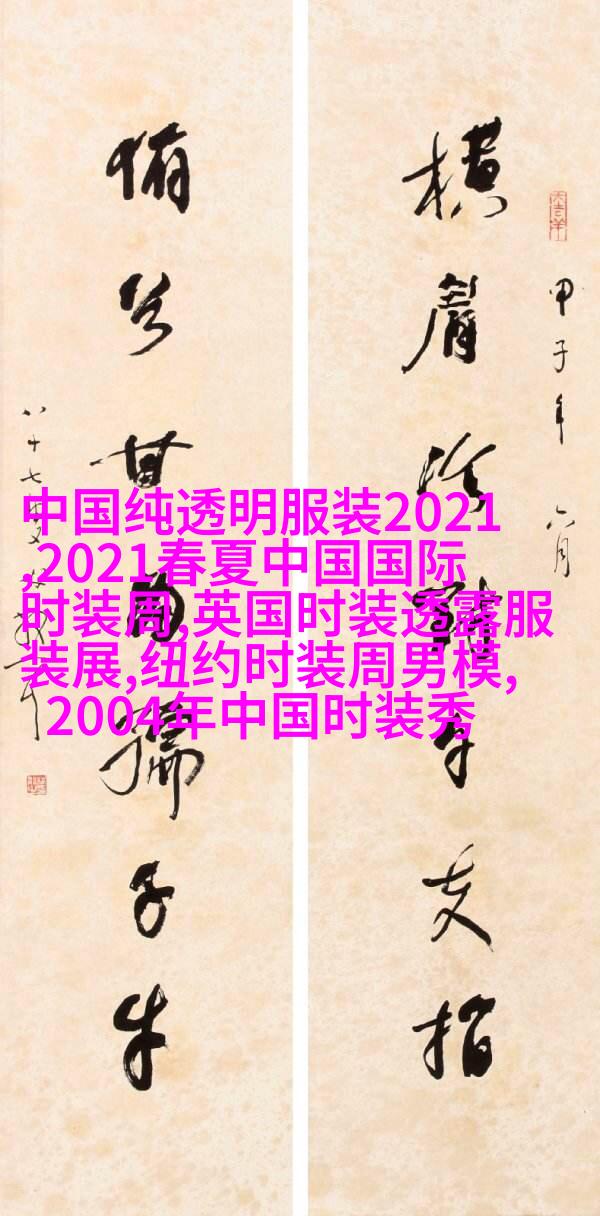 甲子年六月
横眉冷對千夫指
俯首甘為孺子牛
八十七叟
中国纯透明服装2021
,2021春夏中国国际
时装周,英国时装透露服
装展,纽约时装周男模,
2004年中国时装秀